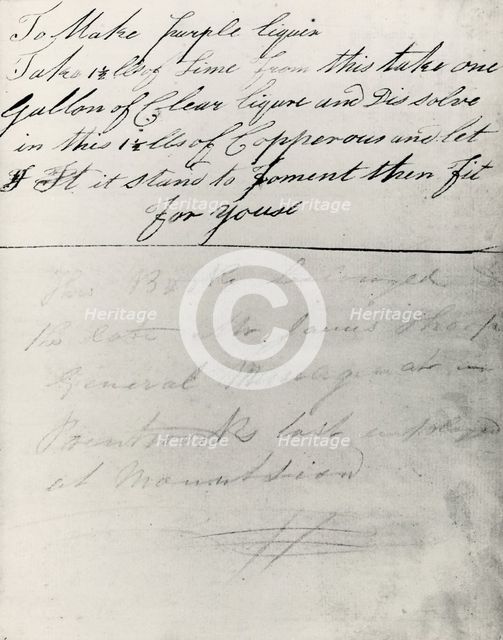 To Make purple liquir
Take 1½ lbs of Lime from this take one
Gallon of Clear liqure and Dissolve
in this 1½ lbs of Copperous and let
It it stand to foment then fit
for youse
This Book belonged
the late Mr. James
General
Painter His last
at Mount Sion
Heritage
Heritage
Heritage
Heritage
Heritage
Heritage
Heritage
Heritage
©